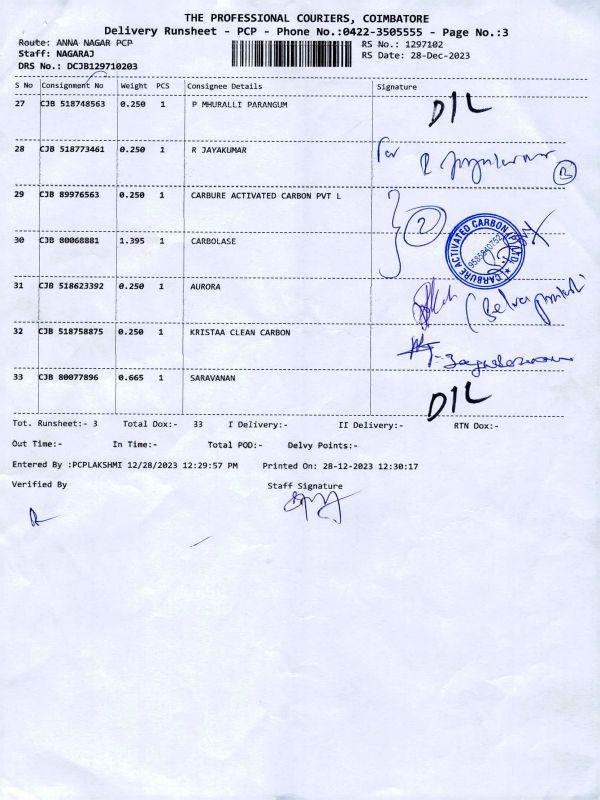 THE PROFESSIONAL COURIERS, COIMBATORE
Delivery Runsheet - PCP - Phone No.:0422-3505555 - Page No.:3
Route: ANNA NAGAR PCP
RS No.: 1297102
Staff: NAGARAJ
RS Date: 28-Dec-2023
DRS No.: DCJB129710203
S No Consignment No Weight PCS Consignee Details Signature
27 CJB 518748563 0.250 1 P MHURALLI PARANGUM D/L
28 CJB 518773461 0.250 1 R JAYAKUMAR For R Jayakumar
29 CJB 89976563 0.250 1 CARBURE ACTIVATED CARBON PVT L
2
CARBURE ACTIVATED CARBON (P) LTD.
30 CJB 80068881 1.395 1 CARBOLASE
31 CJB 518623392 0.250 1 AURORA
32 CJB 518758875 0.250 1 KRISTAA CLEAN CARBON
33 CJB 80077896 0.665 1 SARAVANAN D/L
Tot. Runsheet:- 3 Total Dox:- 33 I Delivery:- II Delivery:- RTN Dox:-
Out Time:- In Time:- Total POD:- Delvy Points:-
Entered By :PCPLAKSHMI 12/28/2023 12:29:57 PM Printed On: 28-12-2023 12:30:17
Verified By Staff Signature